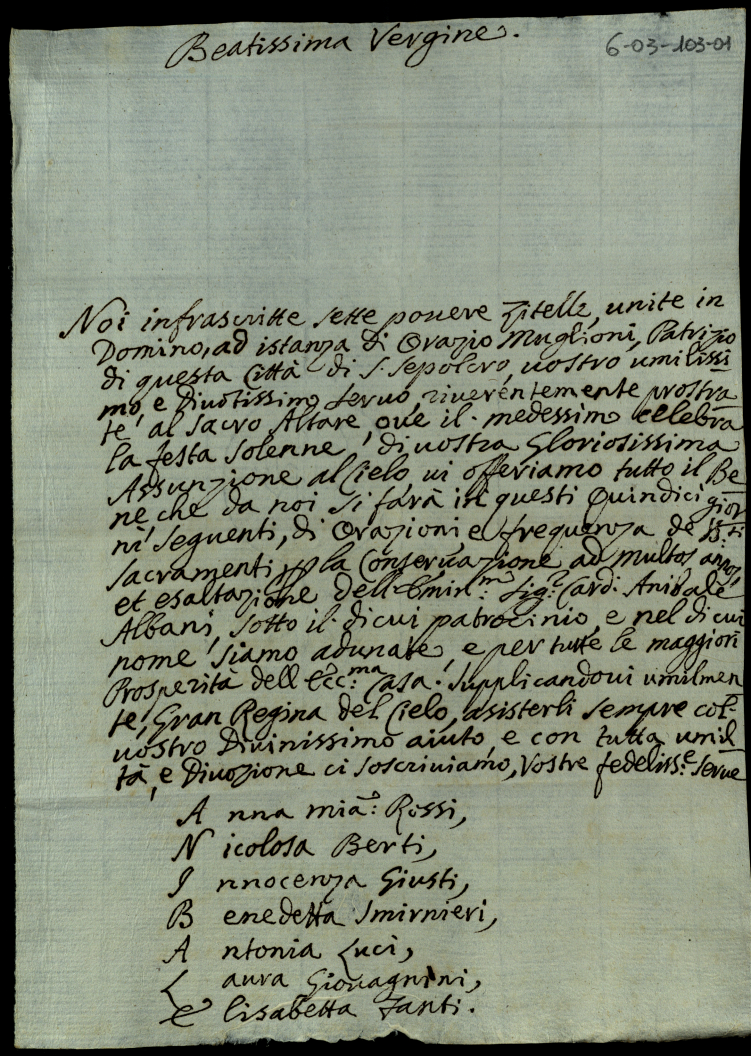 Beatissima Vergine.
6-03-103-01
Noi infrascritte sette povere Zitelle, unite in
Domino, ad istanza di Orazio Muglioni, Patrizio
di questa Città di S. Sepolcro, vostro umilissi
mo, e Divotissimo servo, riverentemente prostra
te al Sacro Altare, ove il medessimo celebra
la festa solenne, di vostra Gloriosissima
Assunzione al Cielo vi offeriamo tutto il Be
ne che da noi si farà in questi Quindici gior
ni seguenti, di Orazioni e frequenza de SS.ti
Sacramenti, p la Conservazione ad multos annos,
et esaltazione dell'Emin.mo Sig.r Card. Anibale
Albani, sotto il di cui patrocinio, e nel di cui
nome siamo adunate, e per tutte le maggiori
Prosperità dell'Ecc.ma Casa. Supplicandovi umilmen
te, Gran Regina del Cielo, asisterli sempre col
vostro Divinissimo aiuto, e con tutta umil
tà, e Divozione ci soscriviamo, Vostre fedeliss.e Serve
A nna mia: Rossi,
N icolosa Berti,
I nnocenza Giusti,
B enedetta Smirnieri,
A ntonia Luci,
L aura Giovagnini,
E lisabetta Fanti.